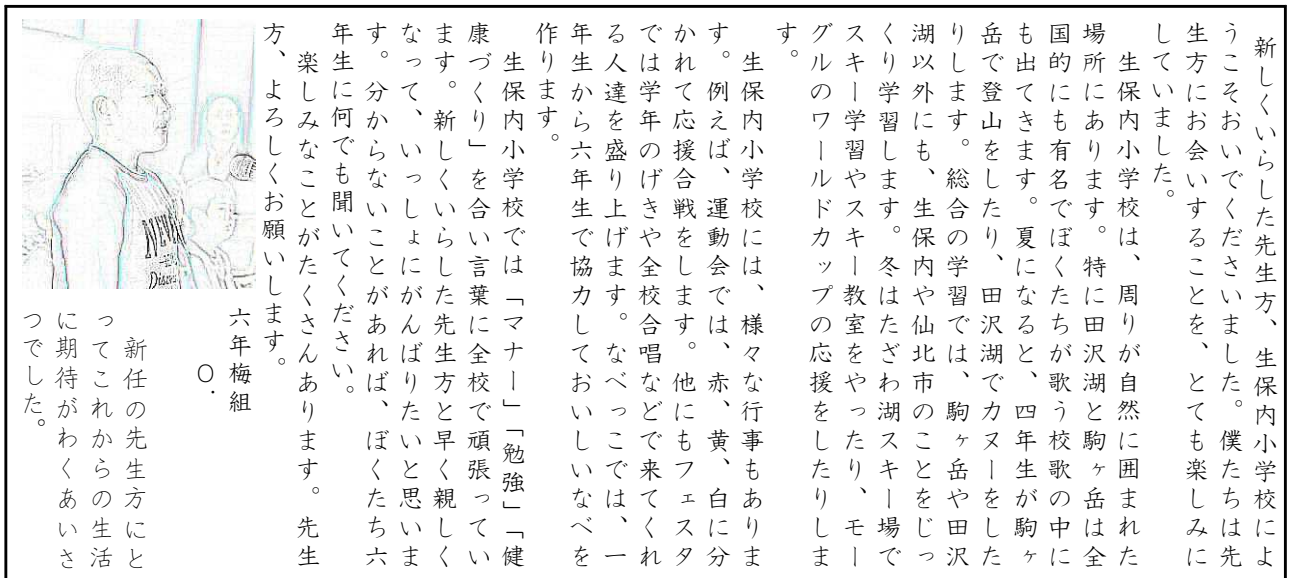 新しくいらした先生方、生保内小学校によ
うこそおいでくださいました。僕たちは先
生方にお会いすることを、とても楽しみに
していました。
生保内小学校は、周りが自然に囲まれた
場所にあります。特に田沢湖と駒ヶ岳は全
国的にも有名でぼくたちが歌う校歌の中に
も出てきます。夏になると、四年生が駒ヶ
岳で登山をしたり、田沢湖でカヌーをした
りします。総合の学習では、駒ヶ岳や田沢
湖以外にも、生保内や仙北市のことをじっ
くり学習します。冬はたざわ湖スキー場で
スキー学習やスキー教室をやったり、モー
グルのワールドカップの応援をしたりしま
す。
生保内小学校には、様々な行事もありま
す。例えば、運動会では、赤、黄、白に分
かれて応援合戦をします。他にもフェスタ
では学年のげきや全校合唱などで来てくれ
る人達を盛り上げます。なべっこでは、一
年生から六年生で協力しておいしいなべを
作ります。
生保内小学校では「マナー」「勉強」「健
康づくり」を合い言葉に全校で頑張ってい
ます。新しくいらした先生方と早く親しく
なって、いっしょにがんばりたいと思いま
す。分からないことがあれば、ぼくたち六
年生に何でも聞いてください。
楽しみなことがたくさんあります。先生
方、よろしくお願いします。
六年梅組
O.
新任の先生方にと
ってこれからの生活
に期待がわくあいさ
つでした。